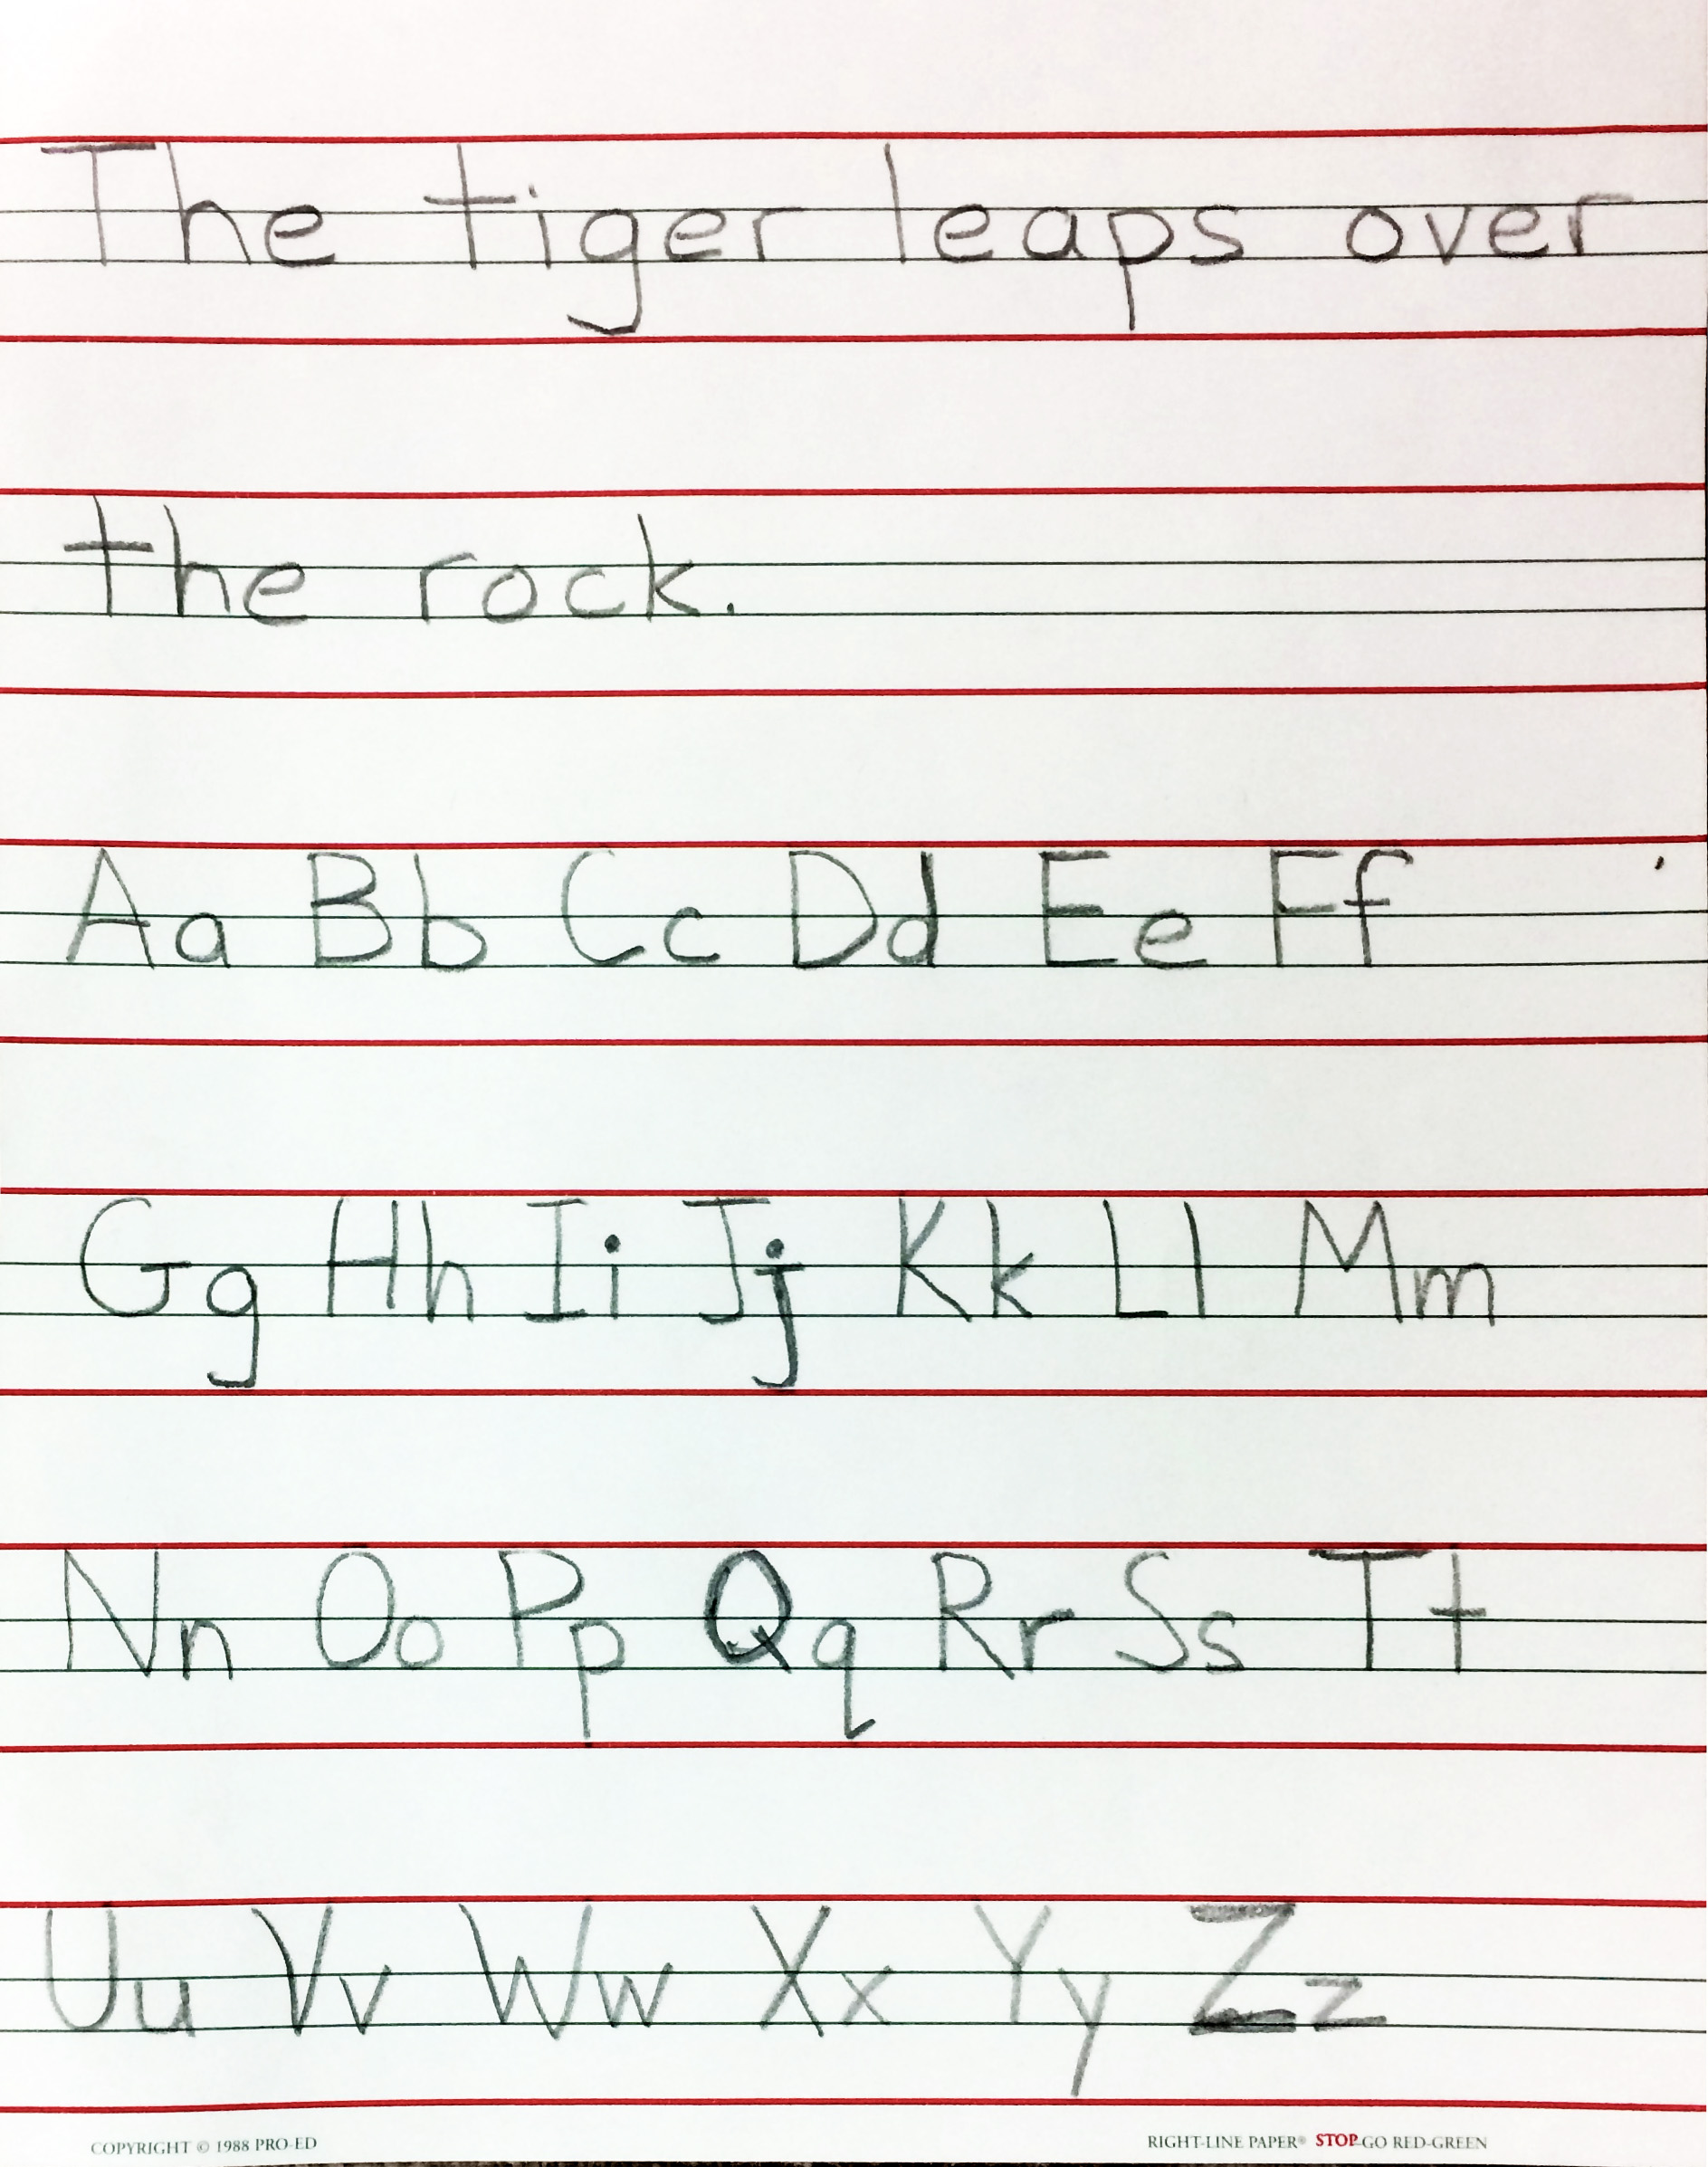 The tiger leaps over
the rock.
Aa Bb Cc Dd Ee Ff
Gg Hh Ii Jj Kk Ll Mm
Nn Oo Pp Qq Rr Ss Tt
Uu Vv Ww Xx Yy Zz
COPYRIGHT © 1988 PRO-ED
RIGHT-LINE PAPER® STOP-GO RED-GREEN